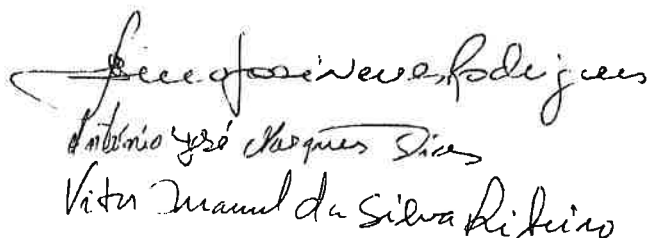 José Neves Rodrigues
António José Marques Dias
Vitor Manuel da Silva Ribeiro